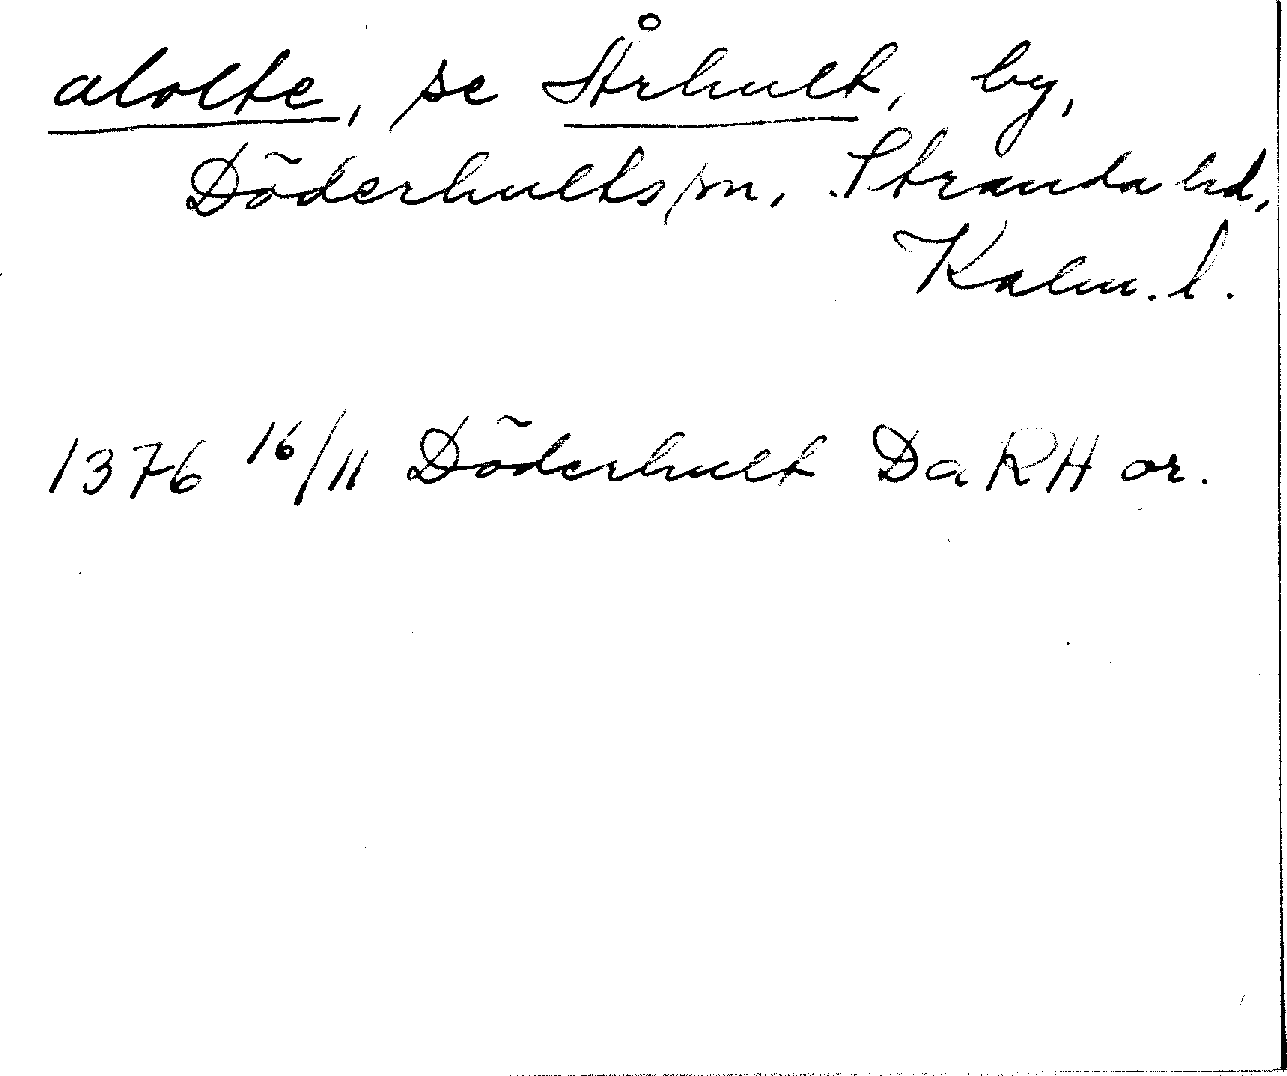 alolte, se Århult, by,
Döderhults sn, Stranda hd,
Kalm. l.
1376 16/11 Döderhult Da RH or.